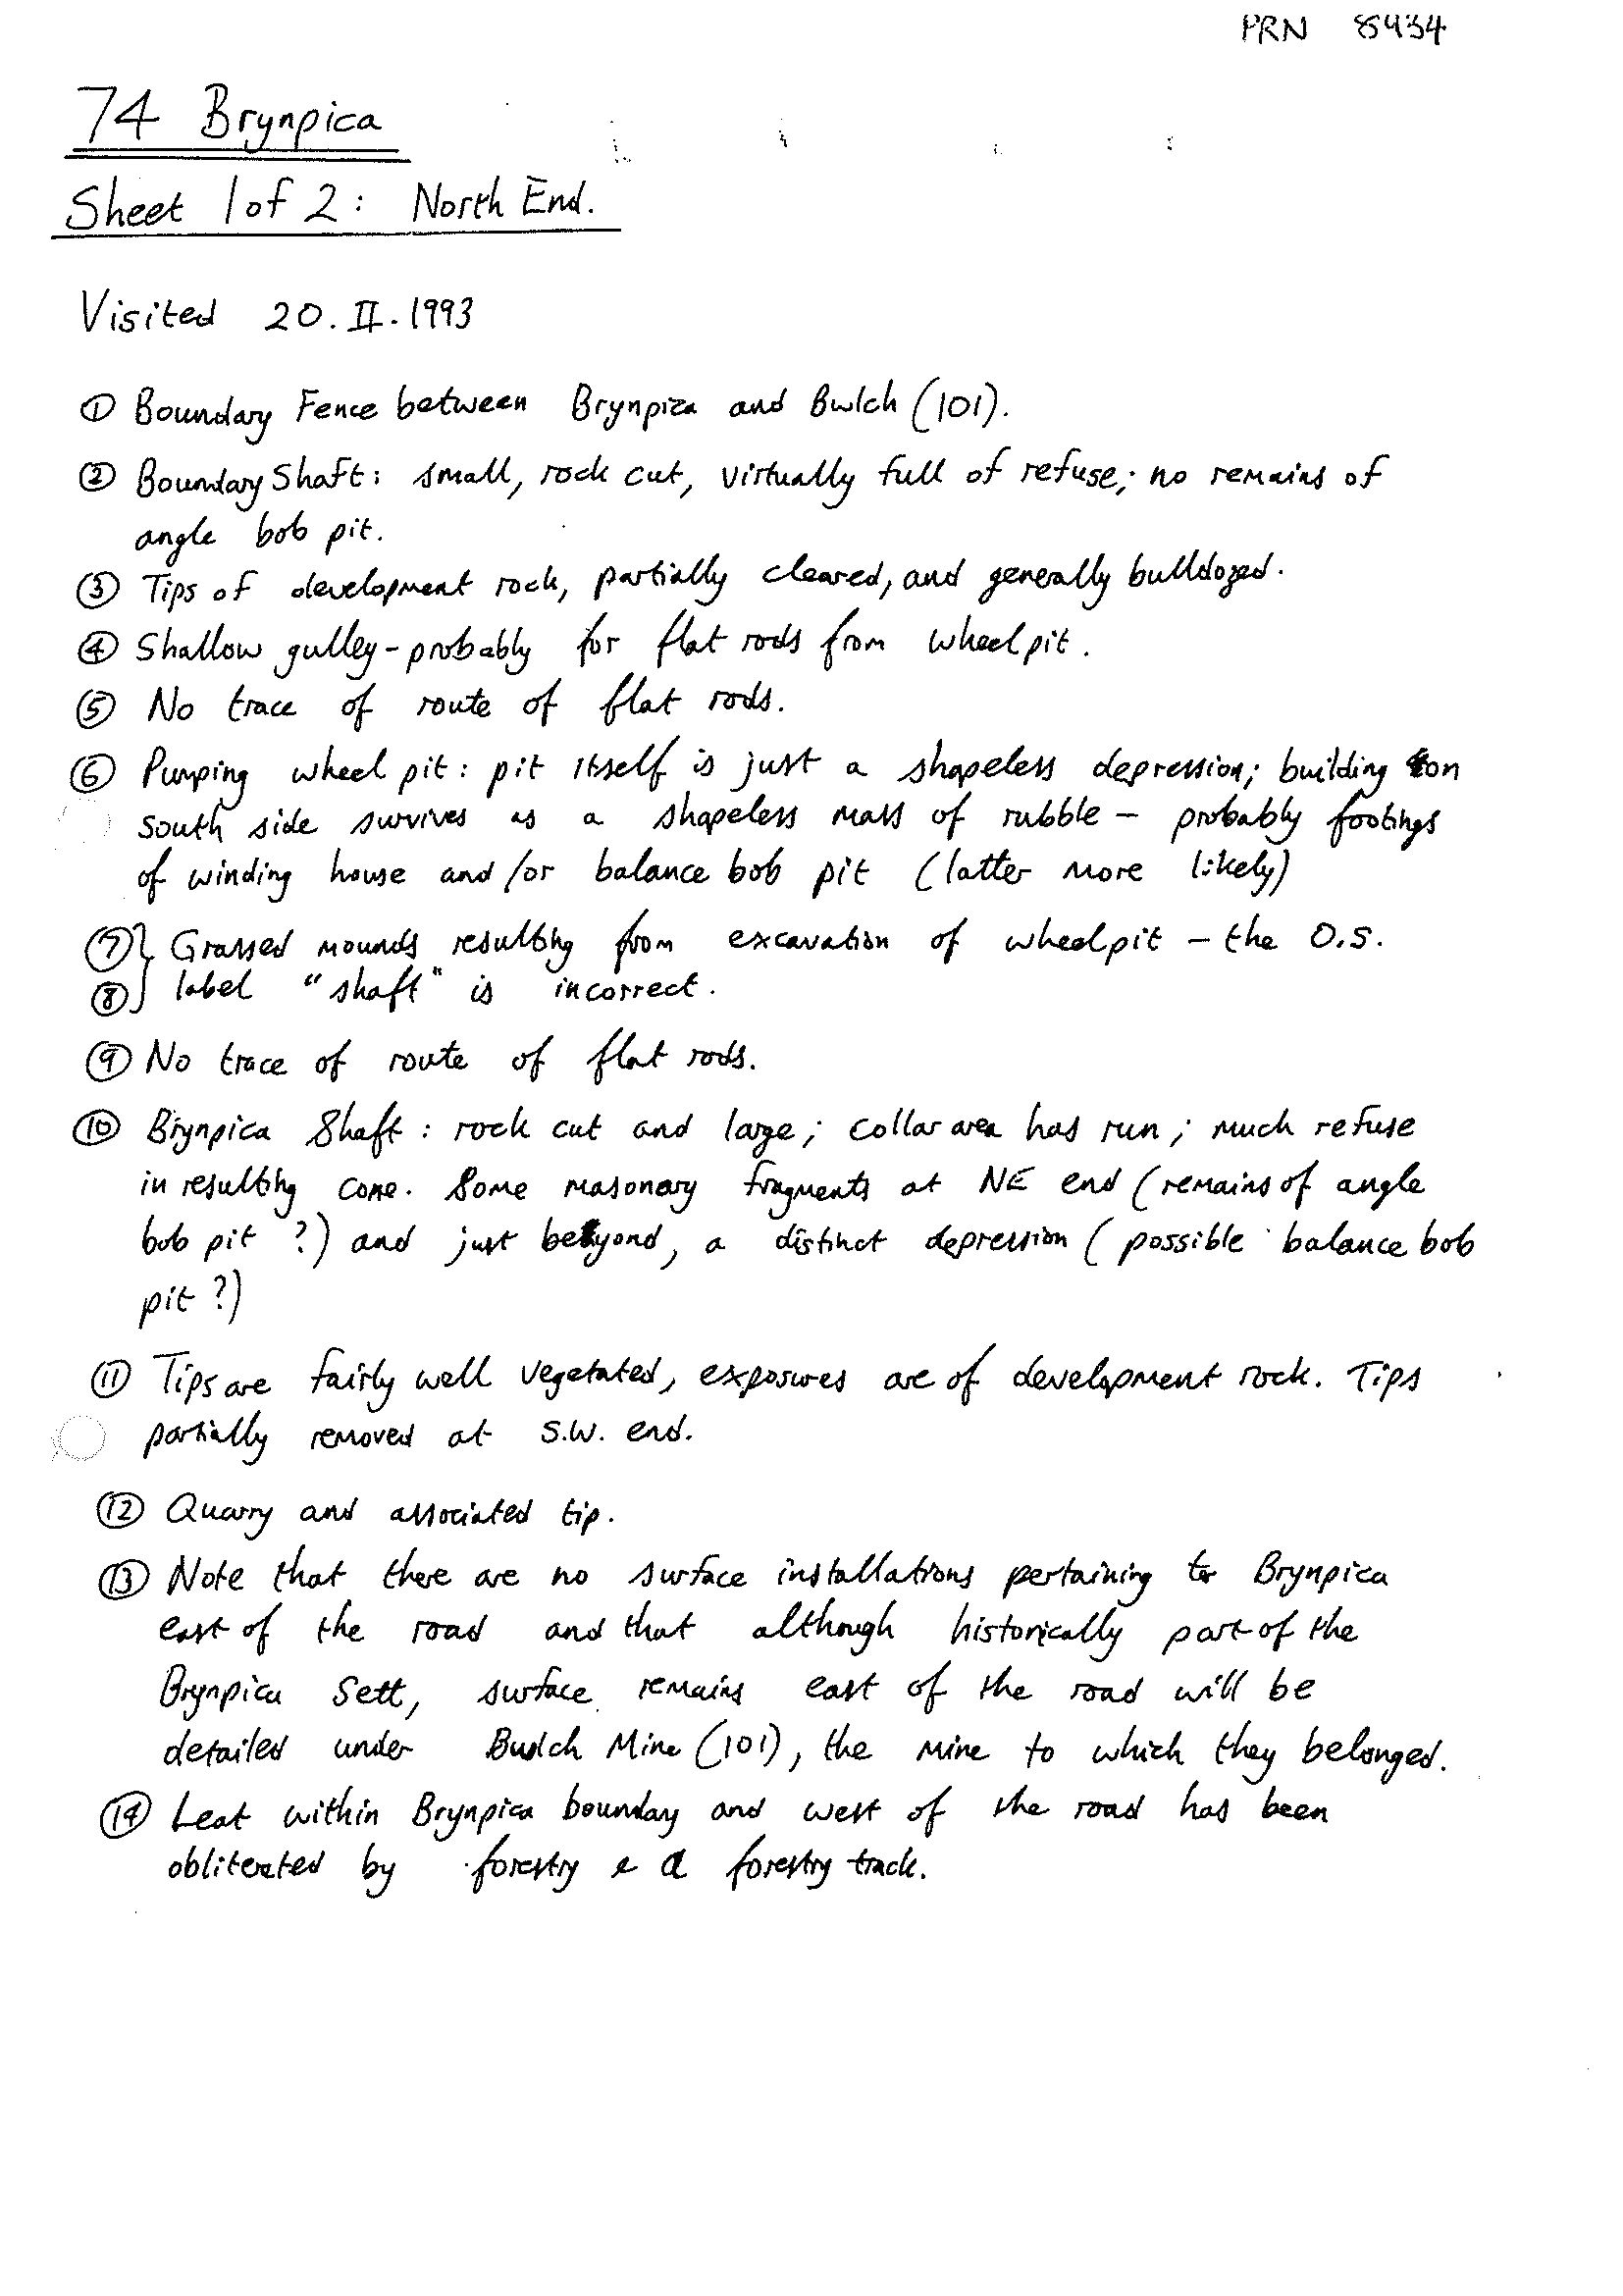 PRN 8434
74 Brynpica
Sheet 1 of 2: North End.
Visited 20.II.1993
① Boundary Fence between Brynpica and Bwlch (101).
② Boundary Shaft: small, rock cut, virtually full of refuse; no remains of
angle bob pit.
③ Tips of development rock, partially cleared, and generally bulldozed.
④ Shallow gulley - probably for flat rods from wheelpit.
⑤ No trace of route of flat rods.
⑥ Pumping wheel pit: pit itself is just a shapeless depression; building on
south side survives as a shapeless mass of rubble - probably footings
of winding house and/or balance bob pit (latter more likely)
⑦ } Grassed mounds resulting from excavation of wheelpit - the O.S.
⑧ } label "shaft" is incorrect.
⑨ No trace of route of flat rods.
⑩ Brynpica Shaft: rock cut and large; collar area has run; much refuse
in resulting cone. Some masonary fragments at NE end (remains of angle
bob pit ?) and just beyond, a distinct depression (possible balance bob
pit ?)
⑪ Tips are fairly well vegetated, exposures are of development rock. Tips
partially removed at S.W. end.
⑫ Quarry and associated tip.
⑬ Note that there are no surface installations pertaining to Brynpica
east of the road and that although historically part of the
Brynpica Sett, surface remains east of the road will be
detailed under Bwlch Mine (101), the mine to which they belonged.
⑭ Leat within Brynpica bounday and west of the road has been
obliterated by forestry & a forestry track.